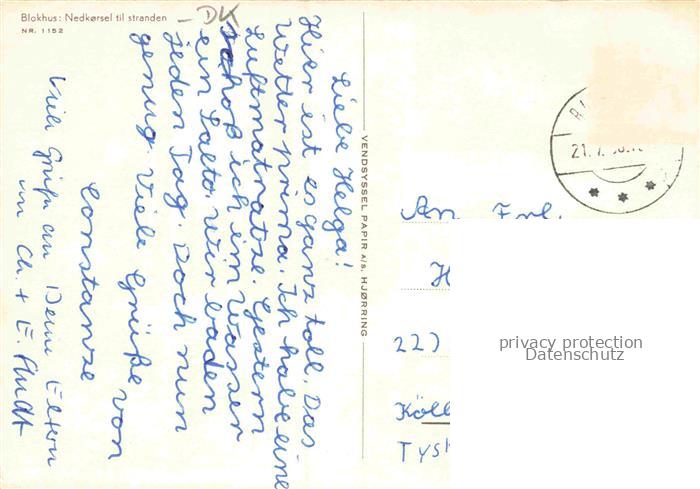 Blokhus: Nedkørsel til stranden
NR. 1152
DK
Liebe Helga!
Hier ist es ganz toll. Das
Wetter prima. Ich habe eine
Luftmatratze. Gestern
schoß ich im Wasser
ein Salto. Wir baden
jeden Tag. Doch nun
genug. Viele Grüße von
Constanze
Viele Grüße an Deine Eltern
von Ch. + E.
VENDSYSSEL PAPIR A/S. HJØRRING
21.7.
An Frl.
H
22)
Köl
Tys
privacy protection
Datenschutz